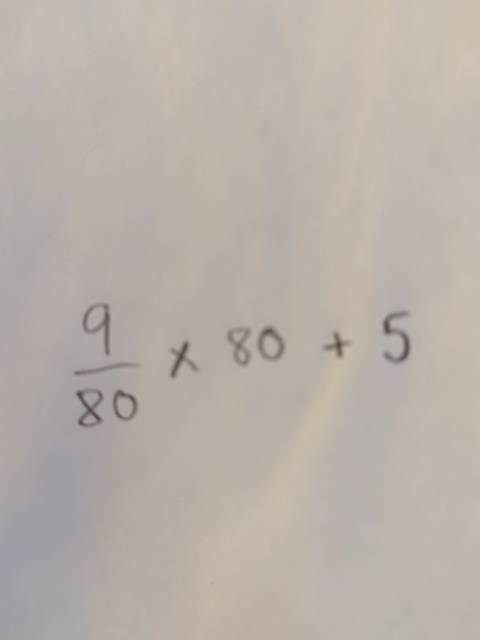 9/80 × 80 + 5